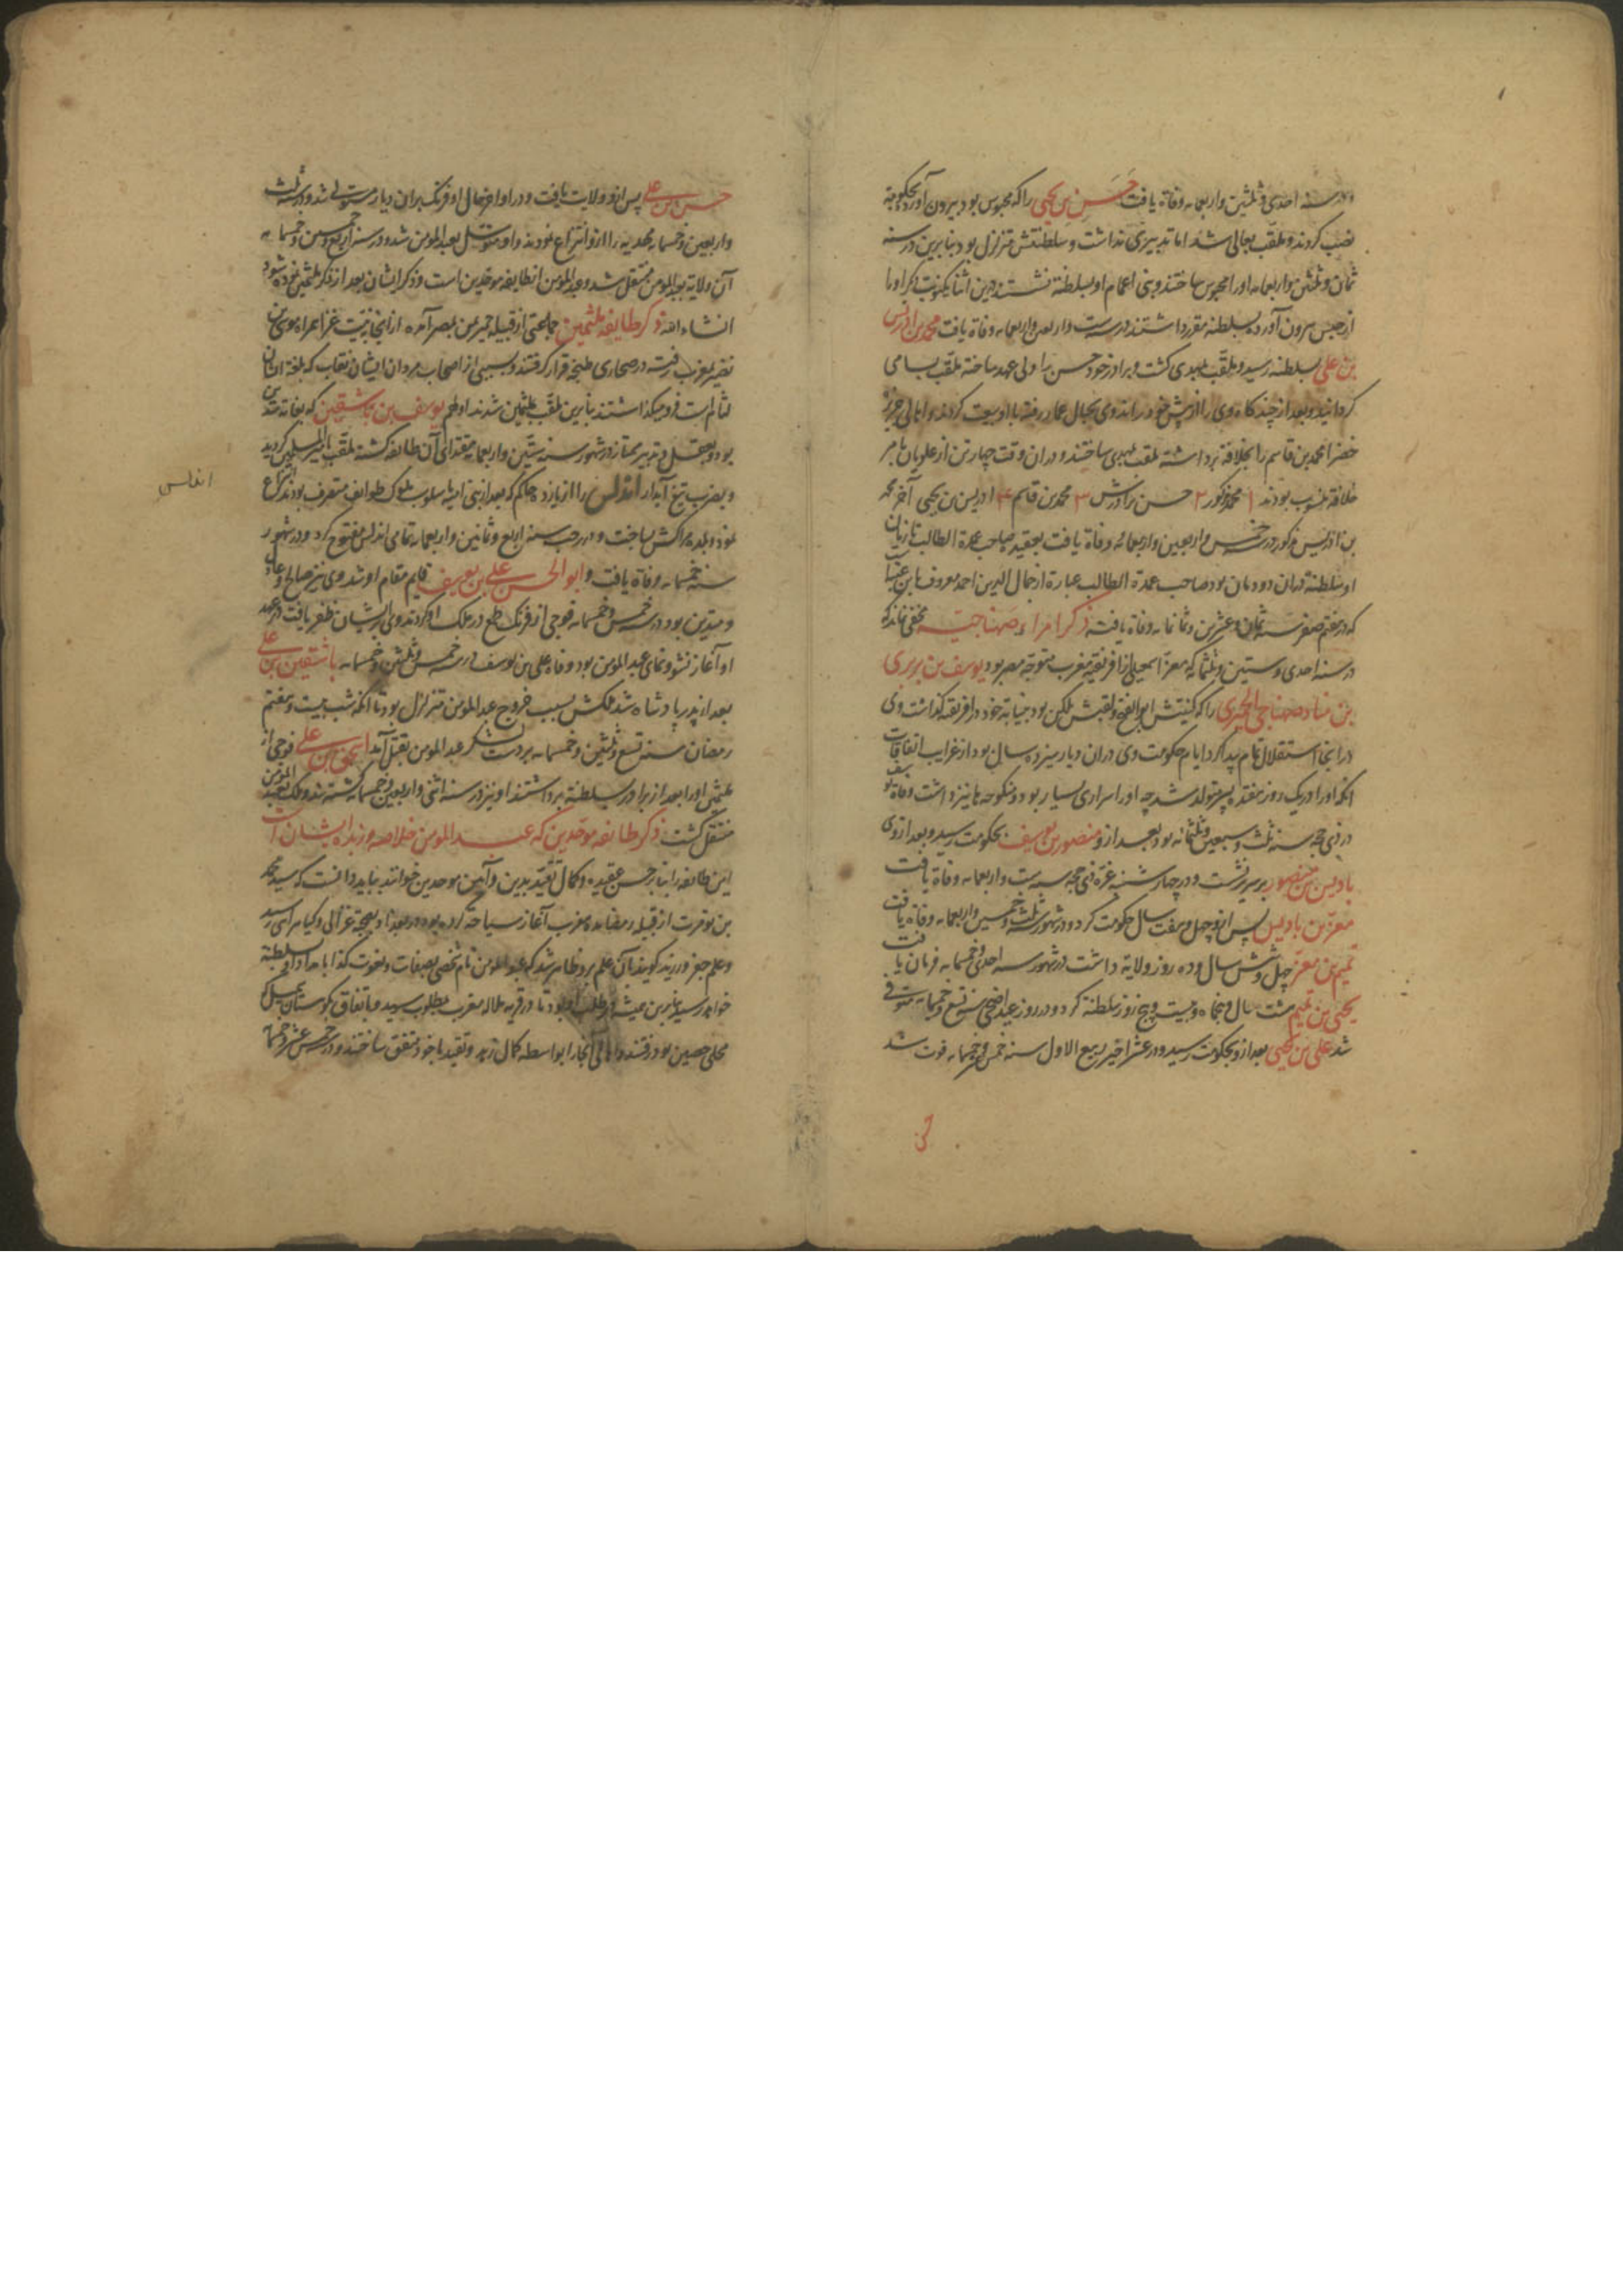 در سنه احدی و ثلثین واربعمایه وفاة یافت حَسَن بن یحیی را که محبوس بود بیرون آورده بحکومة
نصب کردند و ملقب بعالی شد اما تدبیری نداشت و سلطنتش متزلزل بود بنابرین در سنه
ثمان و ثلثین واربعمایه او را محبوس ساختند و بنی اعمام او بسلطنة نشستند درین اثنا یکنوبت دیکر او را
از حبس بیرون آورده بسلطنة مقرر داشتند در سنه ست واربعین واربعمایه وفاة یافت محمد بن ادریس
بن علی بسلطنة رسید و ملقب بمهدی کشت و برادر خود حسن را ولی عهد ساخته ملقب بسامی
کردانید و بعد از چند کاه وی را از پیش خود براند وی بجبال غماره رفته با او بیعت کردند و اهالی جزیره
خضرا محمد بن قاسم را بخلافة برداشته ملقب بمهدی ساختند و در ان وقت چهار تن از علویان بامر
خلافة منسوب بودند ۱ محمد مذکور ۲ حسن برادرش ۳ محمد بن قاسم ۴ ادریس بن یحیی آخر محمد
بن ادریس مذکور در سنه خمس واربعین واربعمائه وفاة یافت بعقیده صاحب عمدة الطالب تا زمان
او سلطنة در ان دودمان بود صاحب عمدة الطالب عبارة از جمال الدین احمد معروف بابن عنبه است
که در هفتم صفر سنه ثمان و عشرین و ثمانمایه وفاة یافته ذکر امراء صنهاجیه مخفی نماند که
در سنه احدی و ستین و ثلثمایه که معز اسمعیلی از افریقیه مغرب متوجه مصر بود یوسف بن زیری
بن مناد صنهاجی الحمیری را که کنیتش ابوالفتوح و لقبش بلکین بود بنیابة خود در افریقه کذاشت وی
در انجا استقلال تمام پیدا کرد ایام حکومت وی در ان دیار سیزده سال بود از غرایب اتفاقات
انکه او را در یک روز هفده پسر متولد شد چه او را سراری بسیار بود و منکوحه ها نیز داشت وفاة یوسف
در ذی حجه سنه ثلث و سبعین و ثلثمائه بود بعد از و منصور بن یوسف بحکومت رسید و بعد از وی
بادیس بن منصور بر سریر نشست و در چهارشنبه غره ذی حجه سنه ست واربعمایه وفاة یافت
معز بن بادیس پس از و چهل و هفت سال حکومت کرد و در شهور سنه ثلث و خمسین واربعمایه وفاة یافت
تمیم بن معز چهل و شش سال و ده روز ولایة داشت در شهور سنه احدی و خمسمایه فرمان یافت
یحیی بن تمیم هشت سال و پنج ماه و بیست و پنج روز سلطنة کرد و در روز عید اضحی سنه تسع و خمسمایه متوفی
شد علی بن یحیی بعد از و بحکومت رسید و در عشر اخیر ربیع الاول سنه خمس و خمسمایه فوت شد
حسن بن علی پس از و ولایت یافت و در اواخر حال او فرنک بران دیار مستولی شد و در سنه ثلث
واربعین و خمسمایه مهدیه را از و انتزاع نمودند و او متوسل بعبد المومن شد و در سنه اربع و خمسین و خمسمایه
آن ولایة بعبد المومن منتقل شد و عبد المومن از طایفه موحدین است و ذکر ایشان بعد از ذکر ملثمین نموده شود
انشاء الله ذکر طایفه ملثمین جماعتی از قبیله حمیر من بمصر آمده از انجا بنیت غزا همراه موسی بن
نصیر بمغرب رفته در صحاری طنجه قرار کرفتند و بسببی از اصحاب مردان ایشان نقاب که بلغة ایشان
لثام است فرو میکذاشتند بنابرین ملقب بملثمین شدند اولهم یوسف بن تاشفین که بغایة متدین
بود و بعقل و تدبیر ممتاز در شهور سنه ستین واربعمایه مقتدای آن طائفه کشته ملقب بامیر المسلمین کردید
و بضرب تیغ آبدار اندلس را از یازده حاکم که بعد از بنی امیه باسلوب ملوک طوایف متصرف بودند انتزاع
نمود و بلده مراکش ساخت و در رجب سنه اربع و ثمانین واربعمایه تمامی اندلس مفتوح کرد و در شهور
سنه خمسمایه وفاة یافت و ابو الحسن علی بن یوسف قایم مقام او شد وی نیز صالح و عادل
و متدین بود در سنه خمس و خمسمایه فوجی از فرنک طمع در ملک او کردند وی بر ایشان ظفر یافت در عهد
او آغاز نشو و نمای عبد المومن بود وفاة علی بن یوسف در سنه خمس و ثلثین و خمسمایه تاشفین بن علی
بعد از پدر پادشاه شد ملکش بسبب خروج عبد المومن متزلزل بود تا انکه شب بیست و هفتم
رمضان سنه تسع و ثلثین و خمسمایه بر دست لشکر عبد المومن بقتل آمد اسحق بن علی فوجی از
ملثمین او را بعد از برادر بسلطنة برداشتند او نیز در سنه اثنی واربعین و خمسمایه کشته شد و ملک بعبد المومن
منتقل کشت ذکر طائفه موحدین که عبد المومن خلاصه و زبده ایشان است
این طائفه را بنابر حسن عقیده و کمال تقید بدین و آیین موحدین خوانند بباید دانست که سید محمد
بن تومرت از قبیله مصامده بمغرب آغاز سیاحة کرده بود در بغداد بصحبة غزالی و کیا هراسی رسید
و علم جفر ورزید کویند بآن علم برو ظاهر شد که عبد المومن نام شخصی بصفات و نعوت کذا بامداد او بسلطنة
خواهد رسید بنابرین همیشه در طلب او بود تا در قریه ملاله مغرب بمطلوب رسید و باتفاق بکوهستان تینملل که
محلی حصین بود رفتند و اهالی آنجا را بواسطه کمال زهد و تقید با خود متفق ساختند و در سنه خمس عشر و خمسمایه
اندلس
حسن